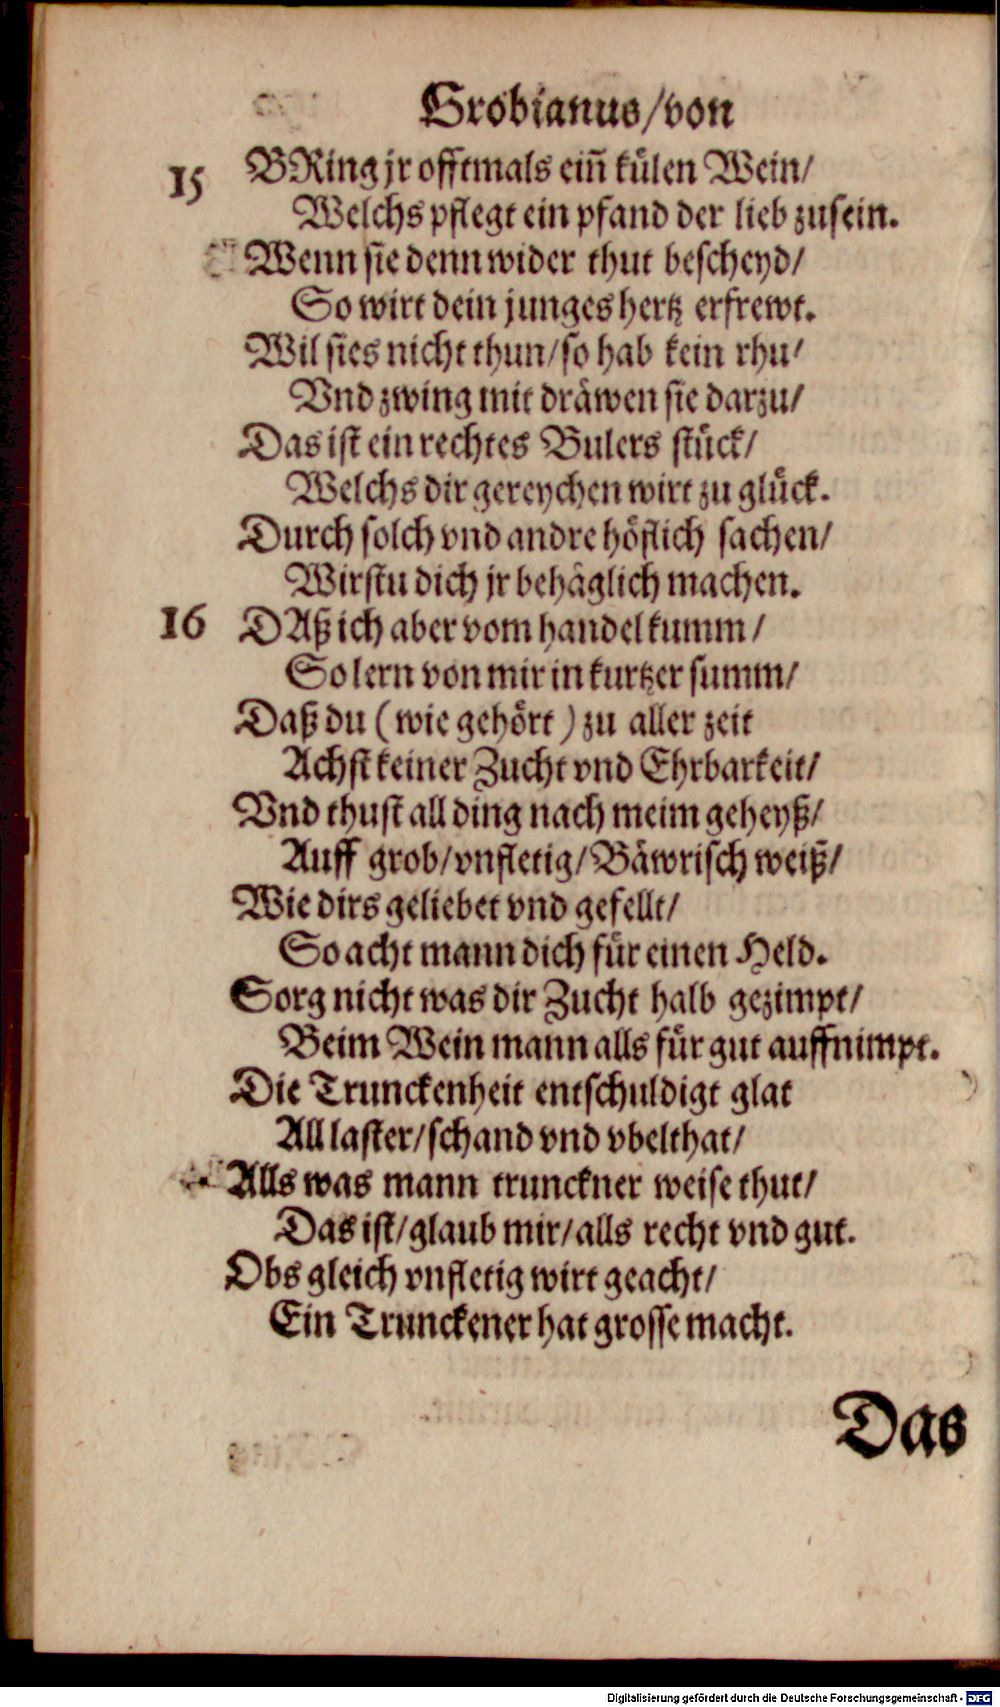 Grobianus/von
15 BRing jr offtmals eiñ kuͤlen Wein/
Welchs pflegt ein pfand der lieb zusein.
Wenn sie denn wider thut bescheyd/
So wirt dein junges hertz erfrewt.
Wil sies nicht thun/so hab kein rhu/
Vnd zwing mit draͤwen sie darzu/
Das ist ein rechtes Bulers stuͤck/
Welchs dir gereychen wirt zu gluͤck.
Durch solch vnd andre hoͤflich sachen/
Wirstu dich jr behaͤglich machen.
16 DAß ich aber vom handel kumm/
So lern von mir in kurtzer summ/
Daß du (wie gehoͤrt) zu aller zeit
Achst keiner Zucht vnd Ehrbarkeit/
Vnd thust all ding nach meim geheyß/
Auff grob/vnfletig/Baͤwrisch weiß/
Wie dirs geliebet vnd gefellt/
So acht mann dich fuͤr einen Held.
Sorg nicht was dir Zucht halb gezimpt/
Beim Wein mann alls fuͤr gut auffnimpt.
Die Trunckenheit entschuldigt glat
All laster/schand vnd vbelthat/
Alls was mann trunckner weise thut/
Das ist/glaub mir/alls recht vnd gut.
Obs gleich vnfletig wirt geacht/
Ein Trunckener hat grosse macht.
Das
Digitalisierung gefördert durch die Deutsche Forschungsgemeinschaft - DFG